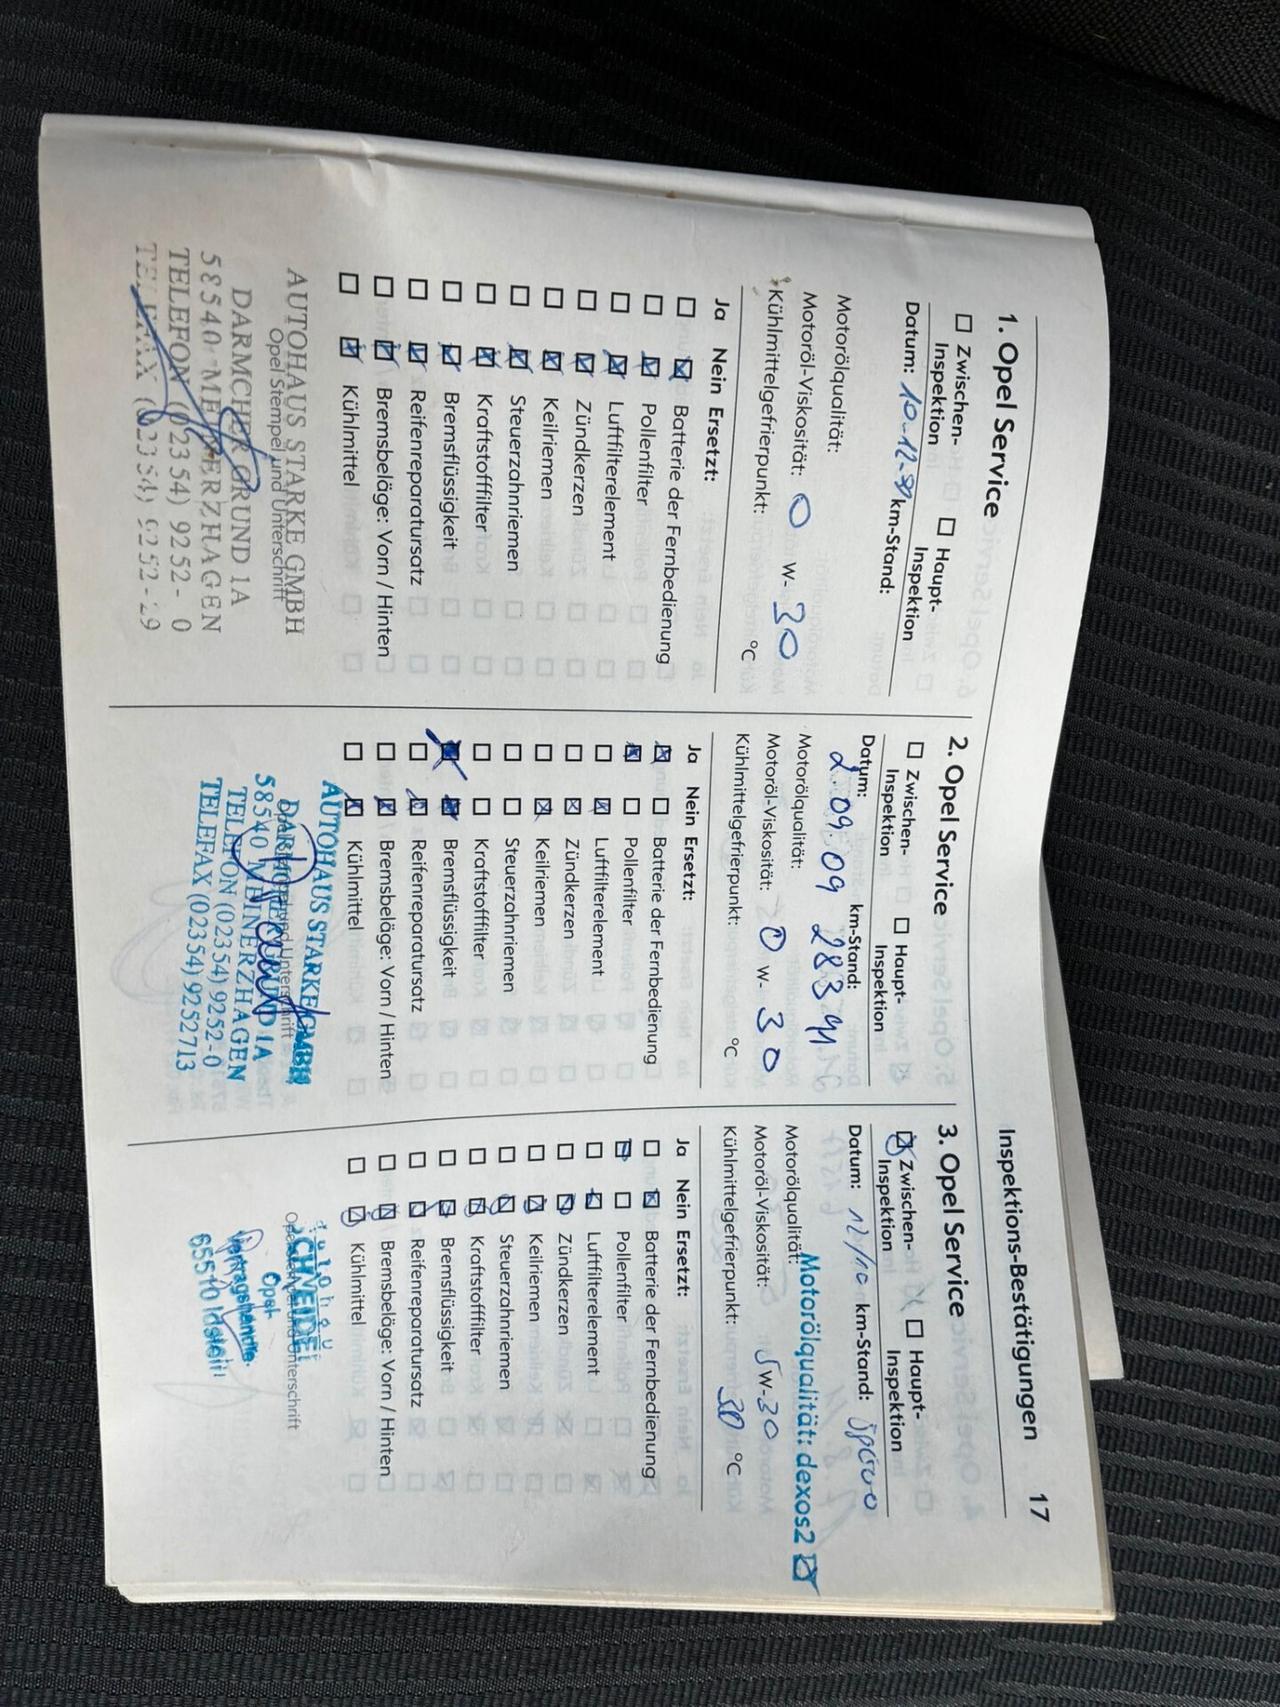 Inspektions-Bestätigungen 17
1. Opel Service
Zwischen- Haupt-
Inspektion Inspektion
Datum: km-Stand:
Motorölqualität:
Motoröl-Viskosität: 0 W- 30
Kühlmittelgefrierpunkt: °C
Ja Nein Ersetzt:
Batterie der Fernbedienung
Pollenfilter
Luftfilterelement
Zündkerzen
Keilriemen
Steuerzahnriemen
Kraftstofffilter
Bremsflüssigkeit
Reifenreparatursatz
Bremsbeläge: Vorn / Hinten
Kühlmittel
Opel Stempel und Unterschrift
AUTOHAUS STARKE GMBH
DARMCHER GRUND 1A
58540 MEINERZHAGEN
TELEFON (02354) 9252- 0
TELEFAX (02354) 9252-29
2. Opel Service
Zwischen- Haupt-
Inspektion Inspektion
Datum: km-Stand:
2.09.09 28391
Motorölqualität:
Motoröl-Viskosität: 0 W- 30
Kühlmittelgefrierpunkt: °C
Ja Nein Ersetzt:
Batterie der Fernbedienung
Pollenfilter
Luftfilterelement
Zündkerzen
Keilriemen
Steuerzahnriemen
Kraftstofffilter
Bremsflüssigkeit
Reifenreparatursatz
Bremsbeläge: Vorn / Hinten
Kühlmittel
AUTOHAUS STARKE GMBH
Opel Stempel und Unterschrift
DARMCHER GRUND 1A
58540 MEINERZHAGEN
TELEFON (02354) 9252-0
TELEFAX (02354) 9252713
3. Opel Service
Zwischen- Haupt-
Inspektion Inspektion
Datum: 12/10 km-Stand:
Motorölqualität: Motorölqualität: dexos2
Motoröl-Viskosität: 5 W-30
Kühlmittelgefrierpunkt: 30 °C
Ja Nein Ersetzt:
Batterie der Fernbedienung
Pollenfilter
Luftfilterelement
Zündkerzen
Keilriemen
Steuerzahnriemen
Kraftstofffilter
Bremsflüssigkeit
Reifenreparatursatz
Bremsbeläge: Vorn / Hinten
Kühlmittel
autohaus
SCHNEIDER
Opel Stempel und Unterschrift
Opel-
Vertragshändler
65510 Idstein